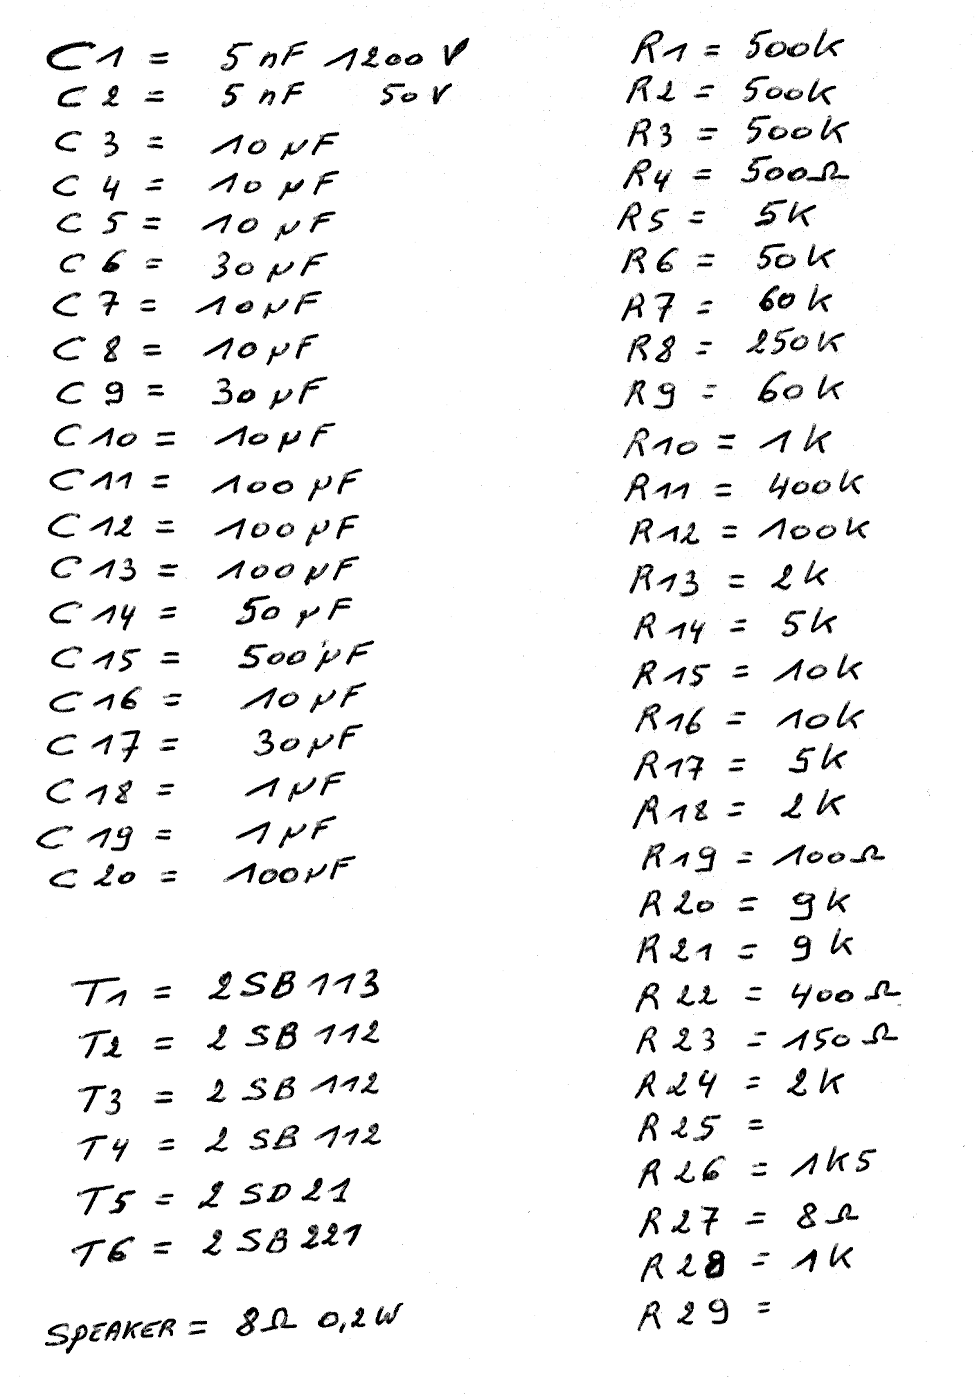 C1 = 5 nF 1200 V
C2 = 5 nF 50 V
C3 = 10 µF
C4 = 10 µF
C5 = 10 µF
C6 = 30 µF
C7 = 10 µF
C8 = 10 µF
C9 = 30 µF
C10 = 10 µF
C11 = 100 µF
C12 = 100 µF
C13 = 100 µF
C14 = 50 µF
C15 = 500 µF
C16 = 10 µF
C17 = 30 µF
C18 = 1 µF
C19 = 1 µF
C20 = 100 µF
T1 = 2SB113
T2 = 2SB112
T3 = 2SB112
T4 = 2SB112
T5 = 2SD21
T6 = 2SB221
SPEAKER = 8Ω 0,2W
R1 = 500k
R2 = 500k
R3 = 500k
R4 = 500Ω
R5 = 5k
R6 = 50k
R7 = 60k
R8 = 250k
R9 = 60k
R10 = 1k
R11 = 400k
R12 = 100k
R13 = 2k
R14 = 5k
R15 = 10k
R16 = 10k
R17 = 5k
R18 = 2k
R19 = 100Ω
R20 = 9k
R21 = 9k
R22 = 400Ω
R23 = 150Ω
R24 = 2k
R25 =
R26 = 1k5
R27 = 8Ω
R28 = 1k
R29 =